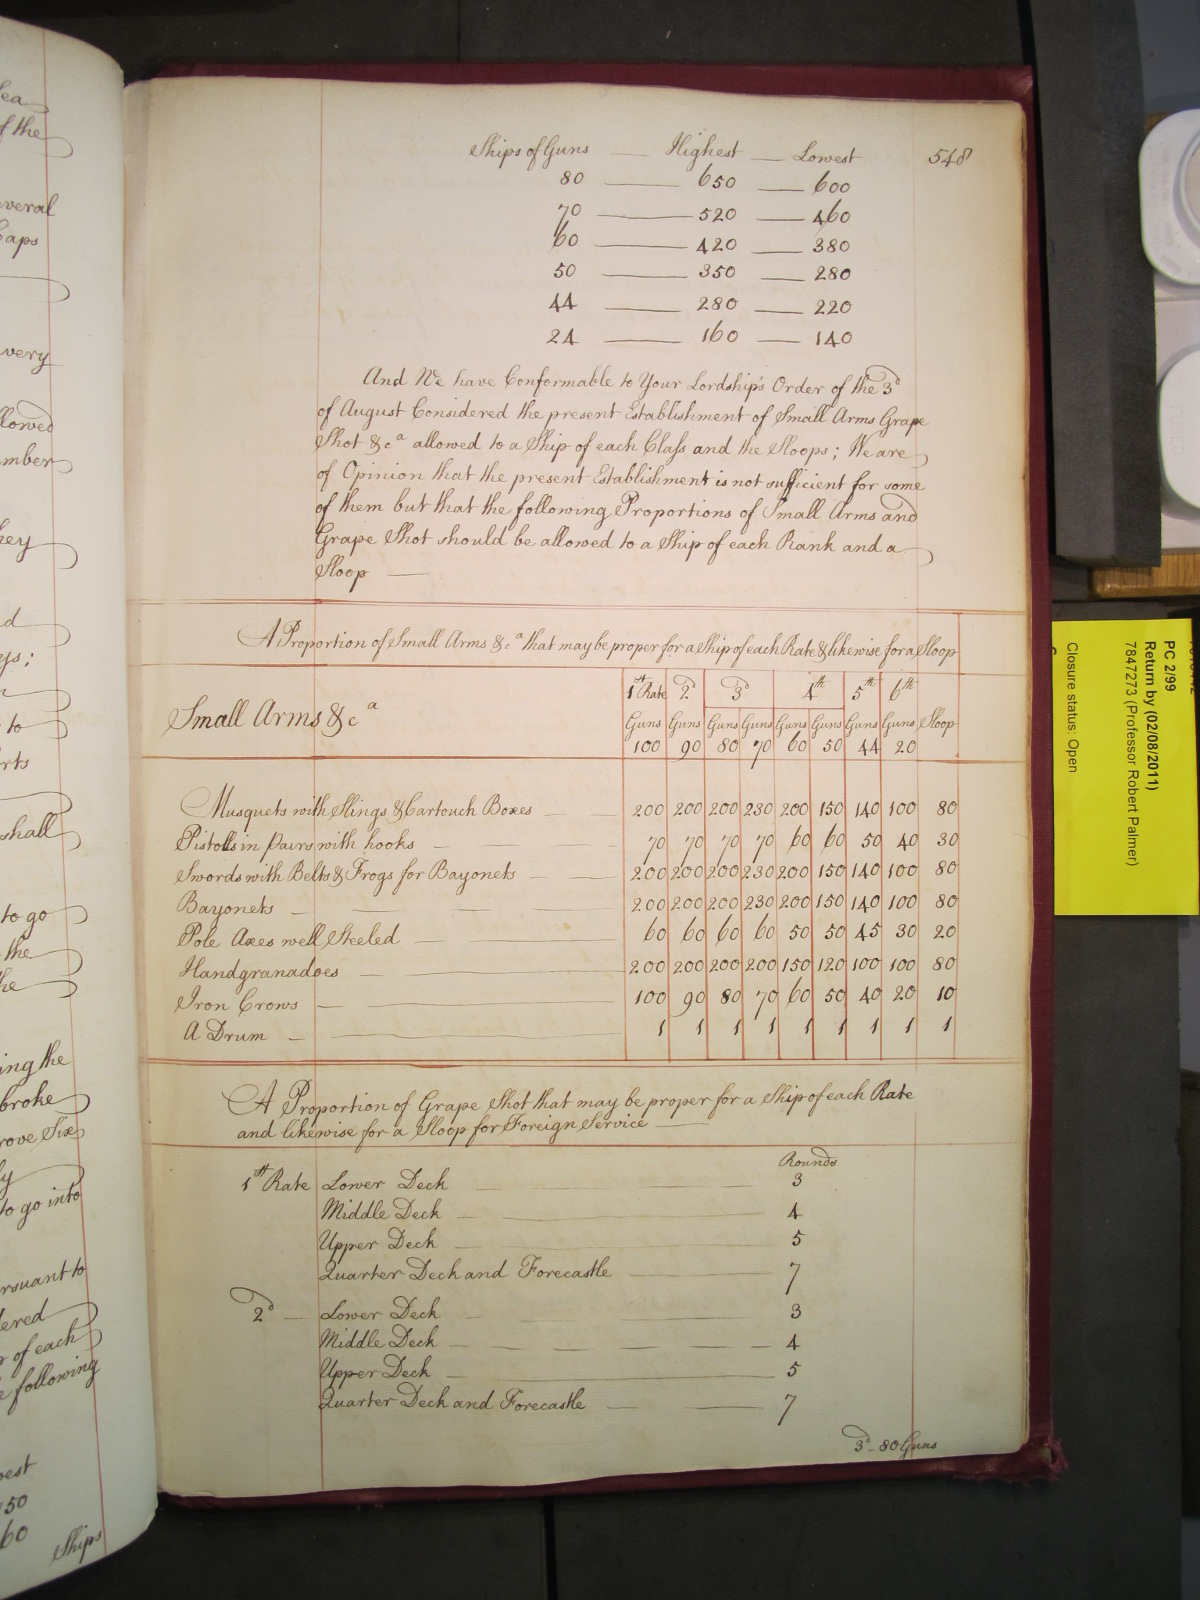 Ships of Guns — Highest — Lowest 548
80 — 650 — 600
70 — 520 — 460
60 — 420 — 380
50 — 350 — 280
44 — 280 — 220
24 — 160 — 140
And We have Conformable to Your Lordship's Order of the 3d
of August Considered the present Establishment of Small Arms Grape
Shot &ca allowed to a Ship of each Class and the Sloops; We are
of Opinion that the present Establishment is not sufficient for some
of them but that the following Proportions of Small Arms and
Grape Shot should be allowed to a Ship of each Rank and a
Sloop —
A Proportion of Small Arms &ca that may be proper for a Ship of each Rate & likewise for a Sloop
Small Arms &ca
1st Rate 2d 3d 4th 5th 6th
Guns Guns Guns Guns Guns Guns Guns Guns Sloop
100 90 80 70 60 50 44 20
Musquets with Slings & Cartouch Boxes — 200 200 200 230 200 150 140 100 80
Pistolls in Pairs with hooks — 70 70 70 70 60 60 50 40 30
Swords with Belts & Frogs for Bayonets — 200 200 200 230 200 150 140 100 80
Bayonets — 200 200 200 230 200 150 140 100 80
Pole Axes well Steeled — 60 60 60 60 50 50 45 30 20
Handgranadoes — 200 200 200 200 150 120 100 100 80
Iron Crows — 100 90 80 70 60 50 40 20 10
A Drum — 1 1 1 1 1 1 1 1 1
A Proportion of Grape Shot that may be proper for a Ship of each Rate
and likewise for a Sloop for Foreign Service —
Rounds
1st Rate Lower Deck — 3
Middle Deck — 4
Upper Deck — 5
Quarter Deck and Forecastle — 7
2d — Lower Deck — 3
Middle Deck — 4
Upper Deck — 5
Quarter Deck and Forecastle — 7
3d - 80 Guns
of the
Caps
very
shall
to go
the
ing the
broke
to go into
of each
following
50
60
Ships
PC 2/99
Return by (02/08/2011)
7847273 (Professor Robert Palmer)
Closure status: Open